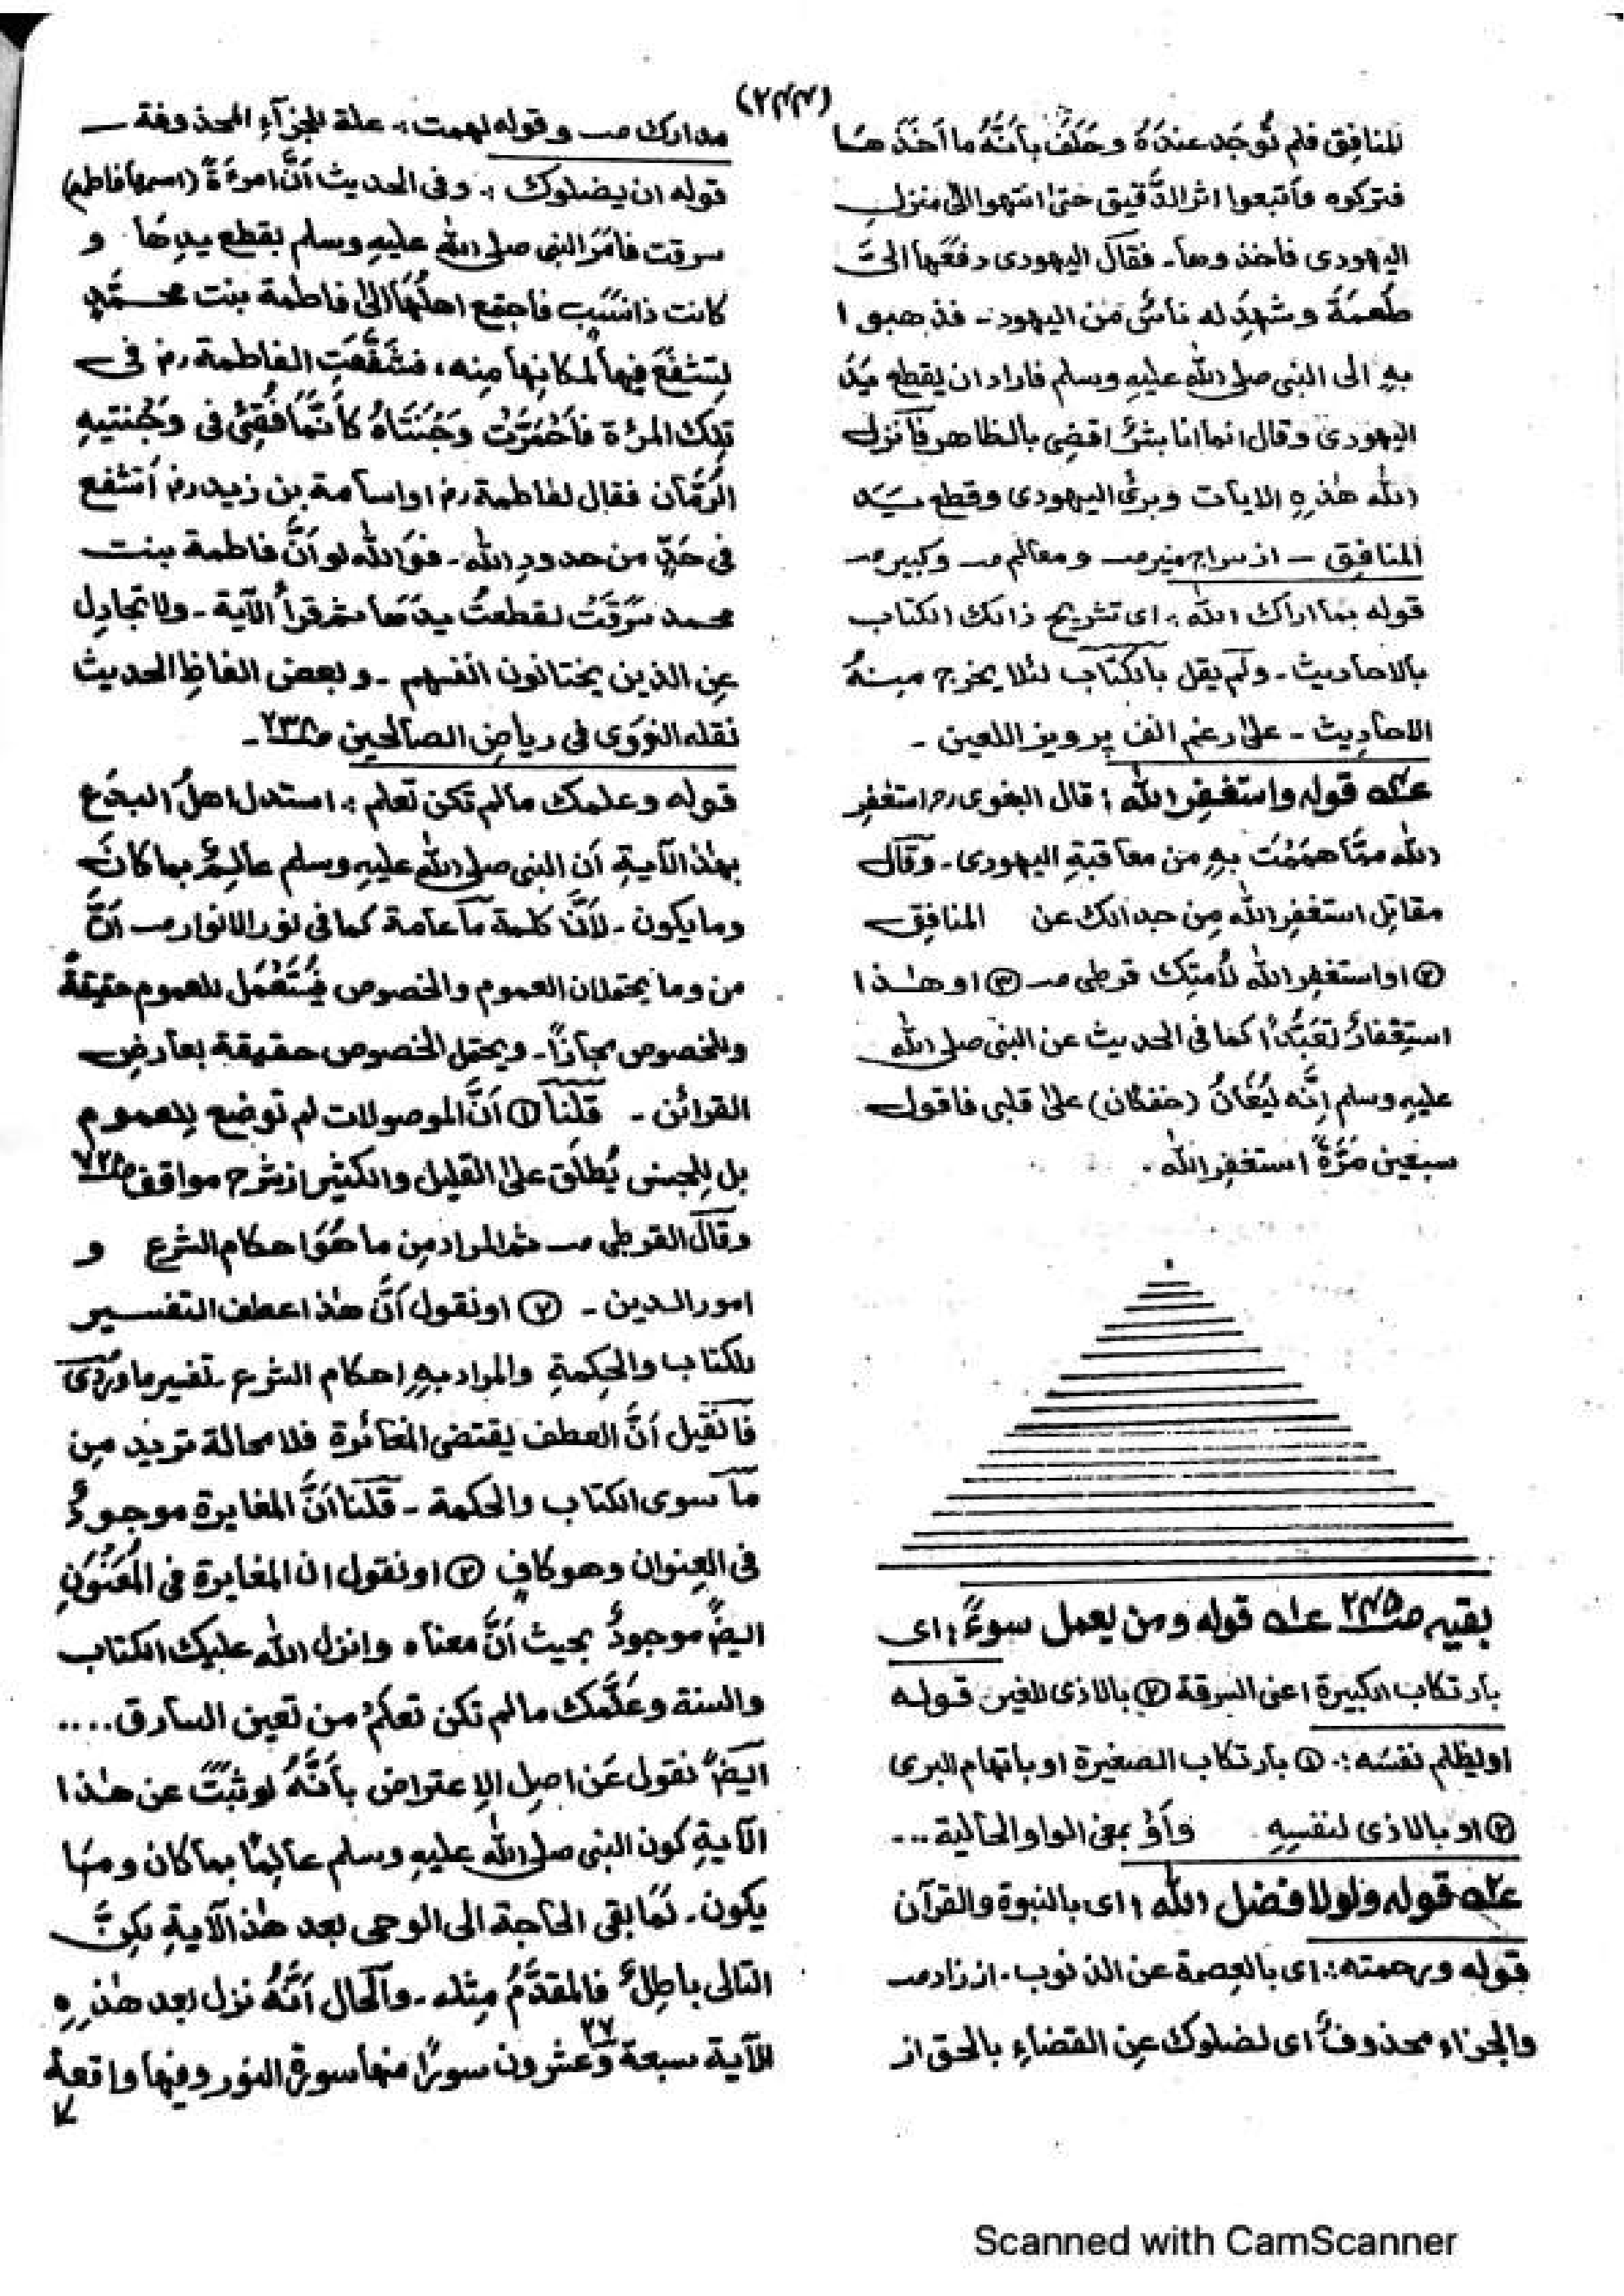 (٢٤٤)
للمنافِقِ فلم تُوجَد عندَهُ وحَلَفَ بأنَّهُ ما اَخَذَ هَا
فتركوه وأتبعوا اثر الدَّقيق حتىٰ انتهوا الىٰ منزلِ
اليهودى فأخذوها ـ فقال اليهودى دفعَها الىَّ
طُعمَةُ وشَهِدَ له ناسٌ مِن اليهود ـ فذهبوا
بهٖ الى النبى صلى الله عليهِ وسلم فاراد ان يقطع يَدَ
اليهودى وقال انما انا بشرٌ اقضى بالظاهر فأنزل
الله هٰذِهِ الايات وبرئ اليهودى وقطع يَدَ
المنافِقِ ـ از سراج منير صـ ومعالم صـ وكبير صـ
قوله بما اراك الله :. اى تشريح ذالك الكتاب
بالاحاديث ـ ولم يقل بالكتاب لئلا يخرج مِنهُ
الاحاديث ـ علىٰ رغم انف پرويز اللعين ـ
عـ٢ـه قوله واستغفِرِ الله : قال البغوى رح استغفِر
الله ممّا هَمَمْتَ بهٖ من معاقبةِ اليهودى ـ وقال
مقاتِل استغفِرِ الله مِن جدالك عن المنافِقِ
② او استغفِرِ الله لأُمتِك قرطبى صـ ③ او هٰذا
استِغفارٌ تعَبُّدًا كما فى الحديث عن النبى صلى الله
عليهِ وسلم اِنَّه لَيُغانُ (خفكان) علىٰ قلبى فاقول
سبعين مَرَّةً استغفِرِ الله .
بقيه صـ٢٤٥ عـ١ـه قوله ومن يعمل سوءً : اى
بارتكاب الكبيرة اعنى السرقة ② بالاذى للغير. قوله
اوليظلم نفسَه :. ① بارتكاب الصغيرة او باتهام البرى
② او بالاذى لنفسِهٖ واَوْ بمعنى الواو الحالية ...
عـ٢ـه قوله ولولا فضل الله : اى بالنبوة والقرآن
قوله ورحمته :. اى بالعِصمة عن الذنوب . از زاد صـ
والجزاء محذوفٌ اى لضلوك عنِ القضاءِ بالحق از
مدارك صـ وقوله لهمت :. علة للجزآء المحذوفة ـ
قوله ان يضلوك :. وفى الحديث اَنَّ امرءَةً (اسمها فاطمه)
سرقت فامَرَ النبى صلى الله عليهِ وسلم بقطع يدِها و
كانت ذا نسَبٍ فأجتمع اهلُهَا الىٰ فاطمة بنت محمّدٍ
لِتشْفَعَ فيها لمكانِها مِنه، فشَفَّعَتِ الفاطمة رض فى
تِلك المرْءة فأحْمَرَّتْ وَجْنَتَاهُ كأنَّمَا فُقِئَ فى وَجْنتيهِ
الرُّمَّان فقال لفاطمة رض او اسامة بن زيد رض أتشفع
فى حَدٍّ من حدودِ الله ـ فوَالله لو اَنَّ فاطمة بنت
محمد سَرَقَتْ لقطعتُ يدَهَا ثم قرأ الآية ـ ولا تجادِل
عنِ الذين يختانون انفسهم ـ وبعض الفاظِ الحديث
نقله النوَوى فى رياضِ الصالحينِ صـ٢٣٨ ـ
قوله وعلمك مالم تكن تعلم :. استدل اهلُ البِدَع
بهٰذ الآيةِ اَن النبى صلى الله عليهِ وسلم عالِمٌ بما كانَ
وما يكون ـ لأنَّ كلمة مآ عامة كما فى نور الانوار صـ اَنَّ
من وما يحتملان العموم والخصوص فيُسْتَعْمَل للعموم حقيقةً
وللخصوص مجازًا ـ ويحتمل الخصوص حقيقة بعارضِ
القرائن ـ قلنا ① اَنَّ الموصولات لم توضع لِلعموم
بل لِلجنس يُطلَق علىٰ القليل والكثير از شرح مواقف
وقال القرطبى صـ ثم المراد مِن ما هُوَ احكام الشرع و
امور الدين ـ ② او نقول اَنَّ هٰذا عطف التفسير
للكتاب والحِكمةِ والمراد بهٖ احكام الشرع ـ تفسير ماوردى
فانْ قيل اَنَّ العطف يقتضى المغائرة فلا محالة تريد مِن
مآ سوى الكتاب والحكمة ـ قلنا اَنَّ المغايرة موجودٌ
فى العِنوان وهو كافٍ ③ او نقول ان المغايرة فى المُعَنْوَنِ
ايضًا موجودٌ بحيث اَنَّ معناه وانزل الله عليك الكتاب
والسنة وعَلَّمَك مالم تكن تعلمُ من تعين السارق ....
ايضًا نقول عَن اصلِ الاِعتراض بأنَّهُ لو ثبَتَ عن هٰذا
الآيةِ كون النبى صلى الله عليهِ وسلم عالِمًا بما كان ومَا
يكون ـ لَمَا بقى الحاجة الى الوحى بعد هٰذ الآيةِ لٰكِنَّ
التالى باطِلٌ فالمقدَّمُ مِثله ـ والحال اَنَّهُ نزل بعد هٰذِهِ
الآية سبعة وعشرون ٢٧ سورًا منها سورة النور وفيها واقعة